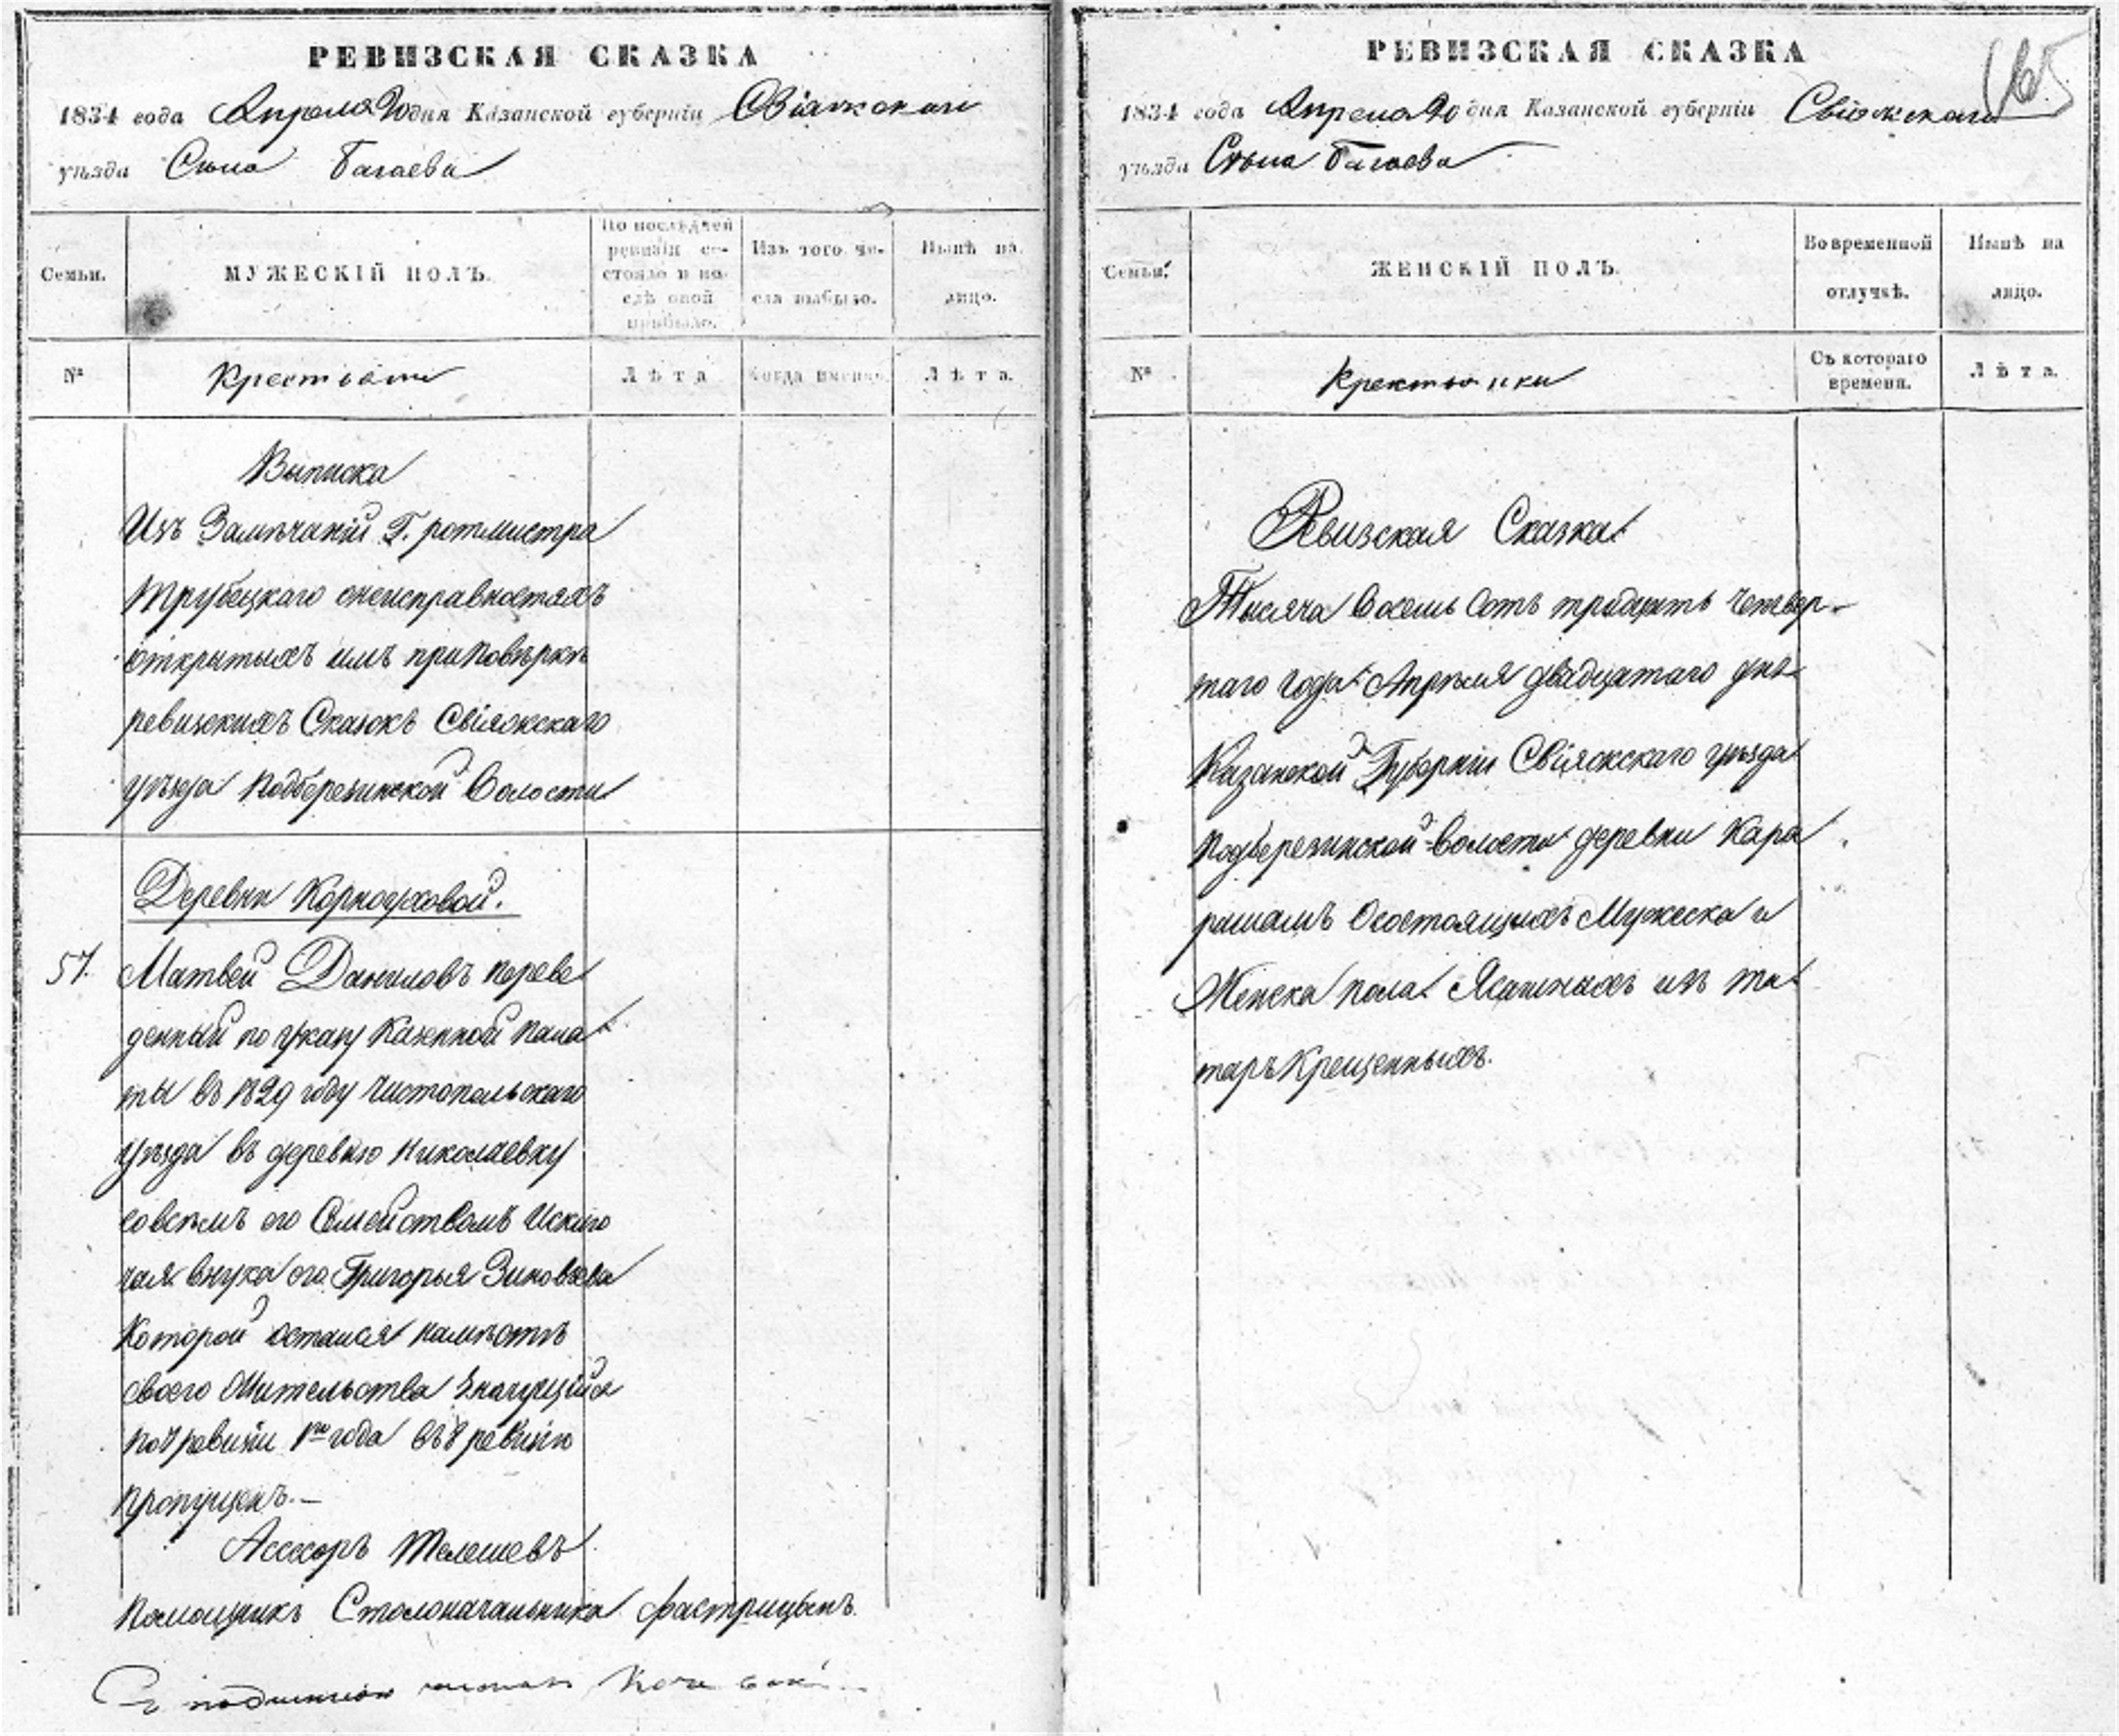 РЕВИЗСКАЯ СКАЗКА
1834 года Апреля 20 дня Казанской губерніи Свіяжскаго
уѣзда Села Багаева
Семьи.
МУЖЕСКІЙ ПОЛЪ.
По послѣдней
ревизіи со-
стояло и по-
слѣ оной
прибыло.
Изъ того чи-
сла выбыло.
Нынѣ на
лицо.
№
Крестьяни
Лѣта
Когда именно.
Лѣта.
Выписка
Изъ Замѣчаній Г. ротмистра
Трубецкаго онеисправностяхъ
открытыхъ имъ приповѣркѣ
ревизскихъ Сказокъ Свіяжскаго
уѣзда Подберезинской Волости
Деревни Корноуховой.
57. Матвей Даниловъ переве
денный по указу Казенной пала
ты въ 1829 году Чистопольскаго
уѣзда въ деревню Николаевку
совсѣмъ его Семействомъ Исклю
чая внука его Григорья Зиновьева
Которой остался намѣстѣ
своего Жительства Значущійся
по 7 ревизіи 1го года въ 8 ревизію
пропущенъ.—
Асесоръ Телешевъ
Помощникъ Столоначальника
Съ подлиннымъ читалъ
РЕВИЗСКАЯ СКАЗКА
165
1834 года Апреля 20 дня Казанской губерніи Свіяжскаго
уѣзда Села Багаева
Семьи.
ЖЕНСКІЙ ПОЛЪ.
Во временной
отлучкѣ.
Нынѣ на
лицо.
№
Крестьянки
Съ котораго
времени.
Лѣта.
Ревизская Сказка
Тысяча Восемь Сотъ тридцать четвер-
таго года Апрѣля двадцатаго дня
Казанской Губерніи Свіяжскаго уѣзда
Подберезинской волости деревни Кара
ришамъ Осостоящихъ Мужеска и
Женска пола Ясашныхъ изъ та
таръ Крещенныхъ.